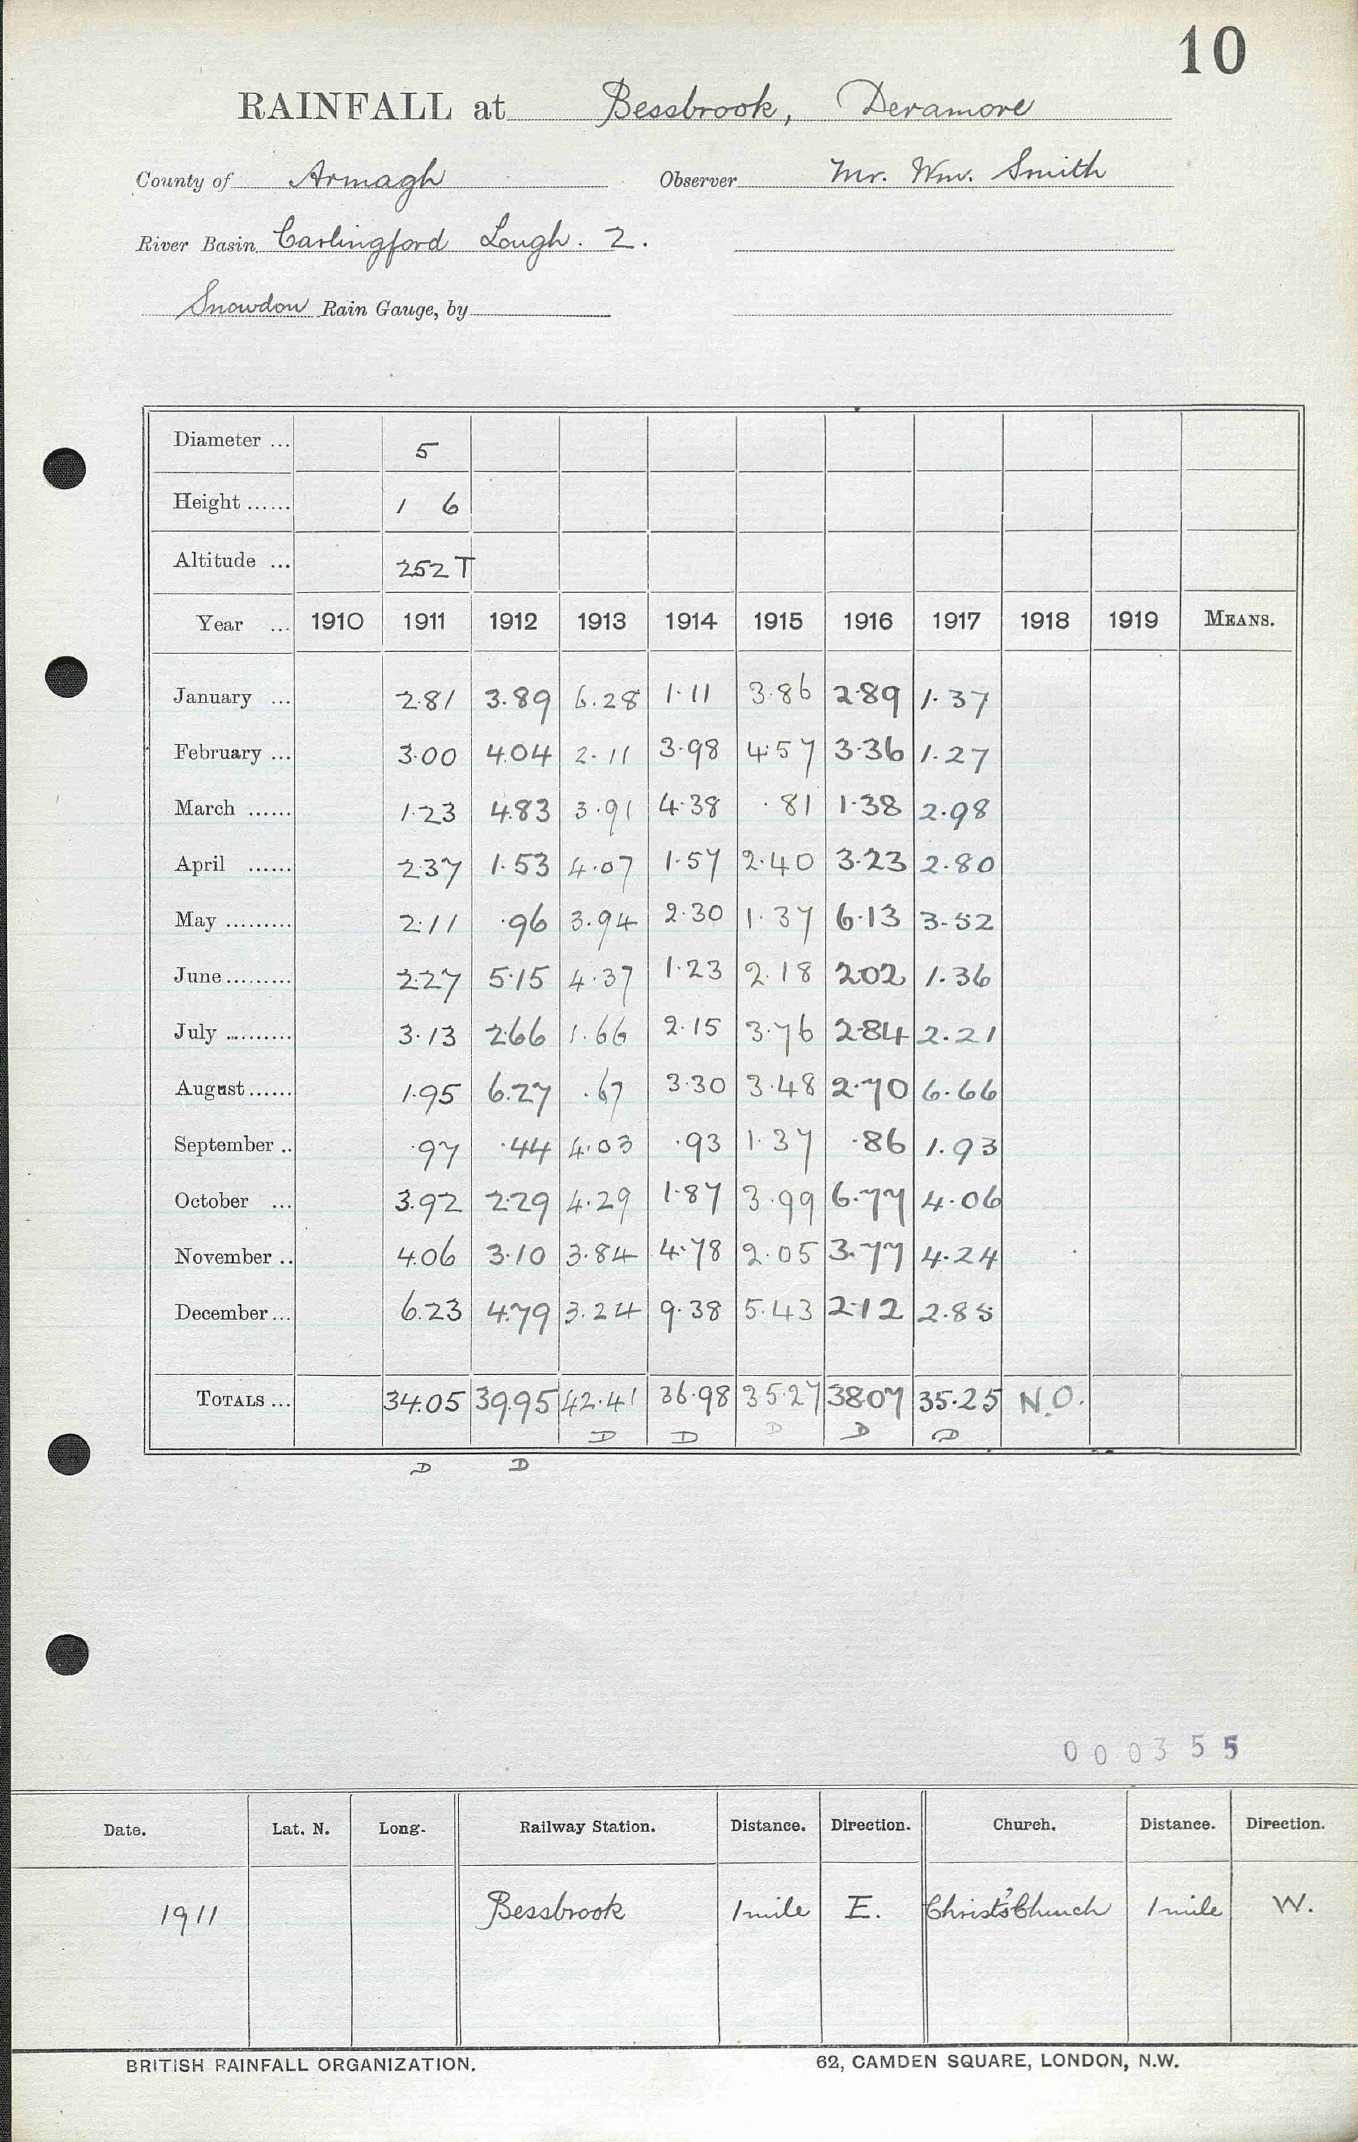 10
RAINFALL at Bessbrook, Deramore
County of Armagh Observer Mr. Wm. Smith
River Basin Carlingford Lough. 2.
Snowdon Rain Gauge, by
Diameter ... 5
Height ...... 1 6
Altitude ... 252 T
Year ... 1910 1911 1912 1913 1914 1915 1916 1917 1918 1919 MEANS.
January ... 2.81 3.89 6.28 1.11 3.86 2.89 1.37
February ... 3.00 4.04 2.11 3.98 4.57 3.36 1.27
March ...... 1.23 4.83 3.91 4.38 .81 1.38 2.98
April ...... 2.37 1.53 4.07 1.57 2.40 3.23 2.80
May ......... 2.11 .96 3.94 2.30 1.37 6.13 3.52
June ......... 2.27 5.15 4.37 1.23 2.18 2.02 1.36
July ......... 3.13 2.66 1.66 2.15 3.76 2.84 2.21
August ...... 1.95 6.27 .67 3.30 3.48 2.70 6.66
September .. .97 .44 4.03 .93 1.37 .86 1.93
October ... 3.92 2.29 4.29 1.87 3.99 6.77 4.06
November .. 4.06 3.10 3.84 4.78 2.05 3.77 4.24
December ... 6.23 4.79 3.24 9.38 5.43 2.12 2.85
TOTALS ... 34.05 39.95 42.41 36.98 35.27 38.07 35.25 N.O.
D D D D D
D D
000355
Date. Lat. N. Long. Railway Station. Distance. Direction. Church. Distance. Direction.
1911 Bessbrook 1 mile E. Christ's Church 1 mile W.
BRITISH RAINFALL ORGANIZATION. 62, CAMDEN SQUARE, LONDON, N.W.